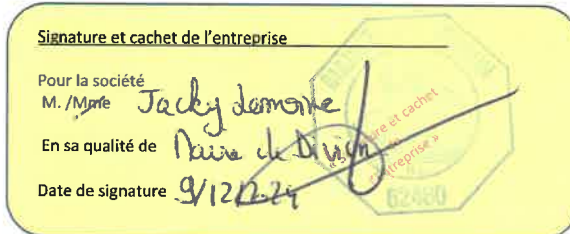 Signature et cachet de l'entreprise
Pour la société
M. /Mme Jacky Lemoine
En sa qualité de Maire de Divion
Date de signature 9/12/2024
re et cachet
treprise »
62460